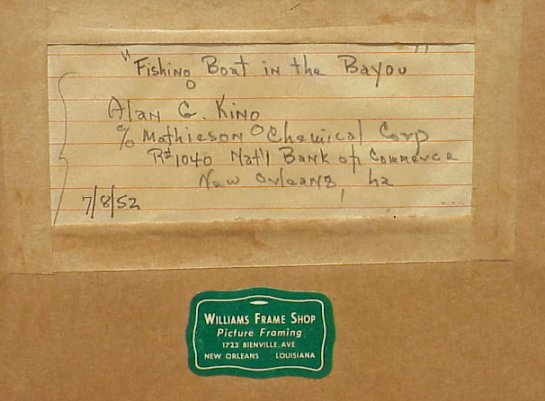 "Fishing Boat in the Bayou"
Alan G. King
c/o Mathieson Chemical Corp
Rm 1040 Nat'l Bank of Commerce
New Orleans, La
7/8/52
WILLIAMS FRAME SHOP
Picture Framing
1723 BIENVILLE AVE
NEW ORLEANS LOUISIANA